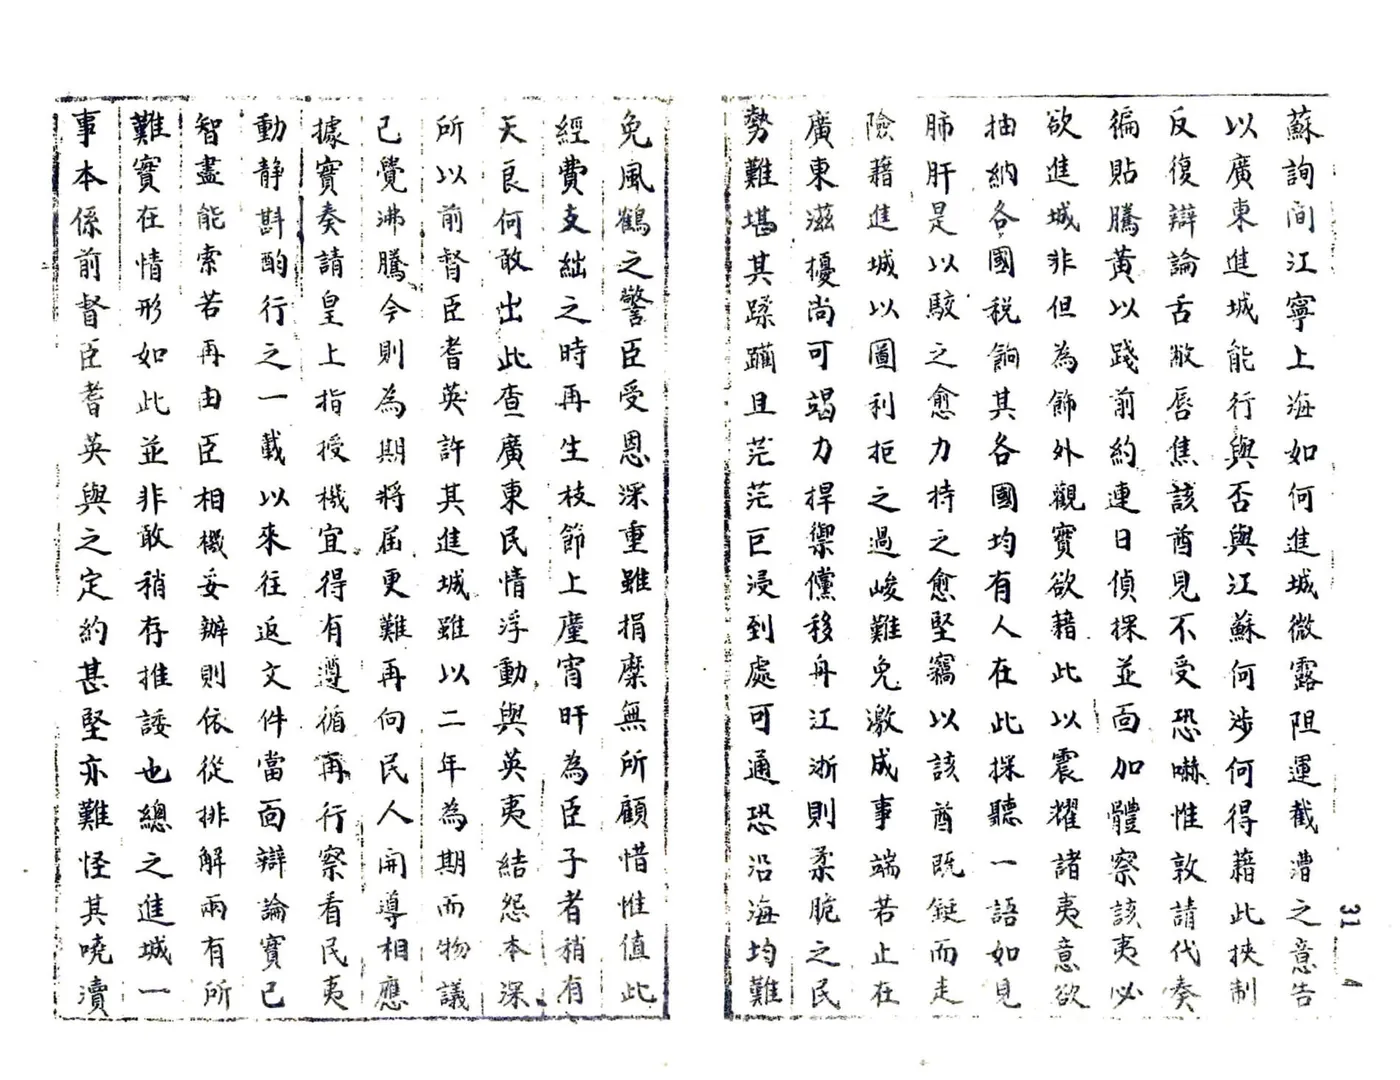 蘇詢間江寧上海如何進城微露阻運截漕之意告
以廣東進城能行與否與江蘇何涉何得藉此挾制
反復辯論舌敝唇焦該酋見不受恐嚇惟敦請代奏
徧貼騰黃以踐前約連日偵探並面加體察該夷必
欲進城非但為飾外觀實欲藉此以震耀諸夷意欲
抽納各國稅餉其各國均有人在此探聽一語如見
肺肝是以駮之愈力持之愈堅竊以該酋既鋌而走
險藉進城以圖利拒之過峻難免激成事端若止在
廣東滋擾尚可竭力捍禦儻移舟江浙則柔脆之民
勢難堪其蹂躪且茫茫巨浸到處可通恐沿海均難
免風鶴之警臣受恩深重雖捐糜無所顧惜惟值此
經費支絀之時再生枝節上廑宵旰為臣子者稍有
天良何敢出此查廣東民情浮動與英夷結怨本深
所以前督臣耆英許其進城雖以二年為期而物議
已覺沸騰今則為期將屆更難再向民人開導相應
據實奏請皇上指授機宜得有遵循再行察看民夷
動靜斟酌行之一載以來往返文件當面辯論實已
智盡能索若再由臣相機妥辦則依從排解兩有所
難實在情形如此並非敢稍存推諉也總之進城一
事本係前督臣耆英與之定約甚堅亦難怪其嘵瀆
31